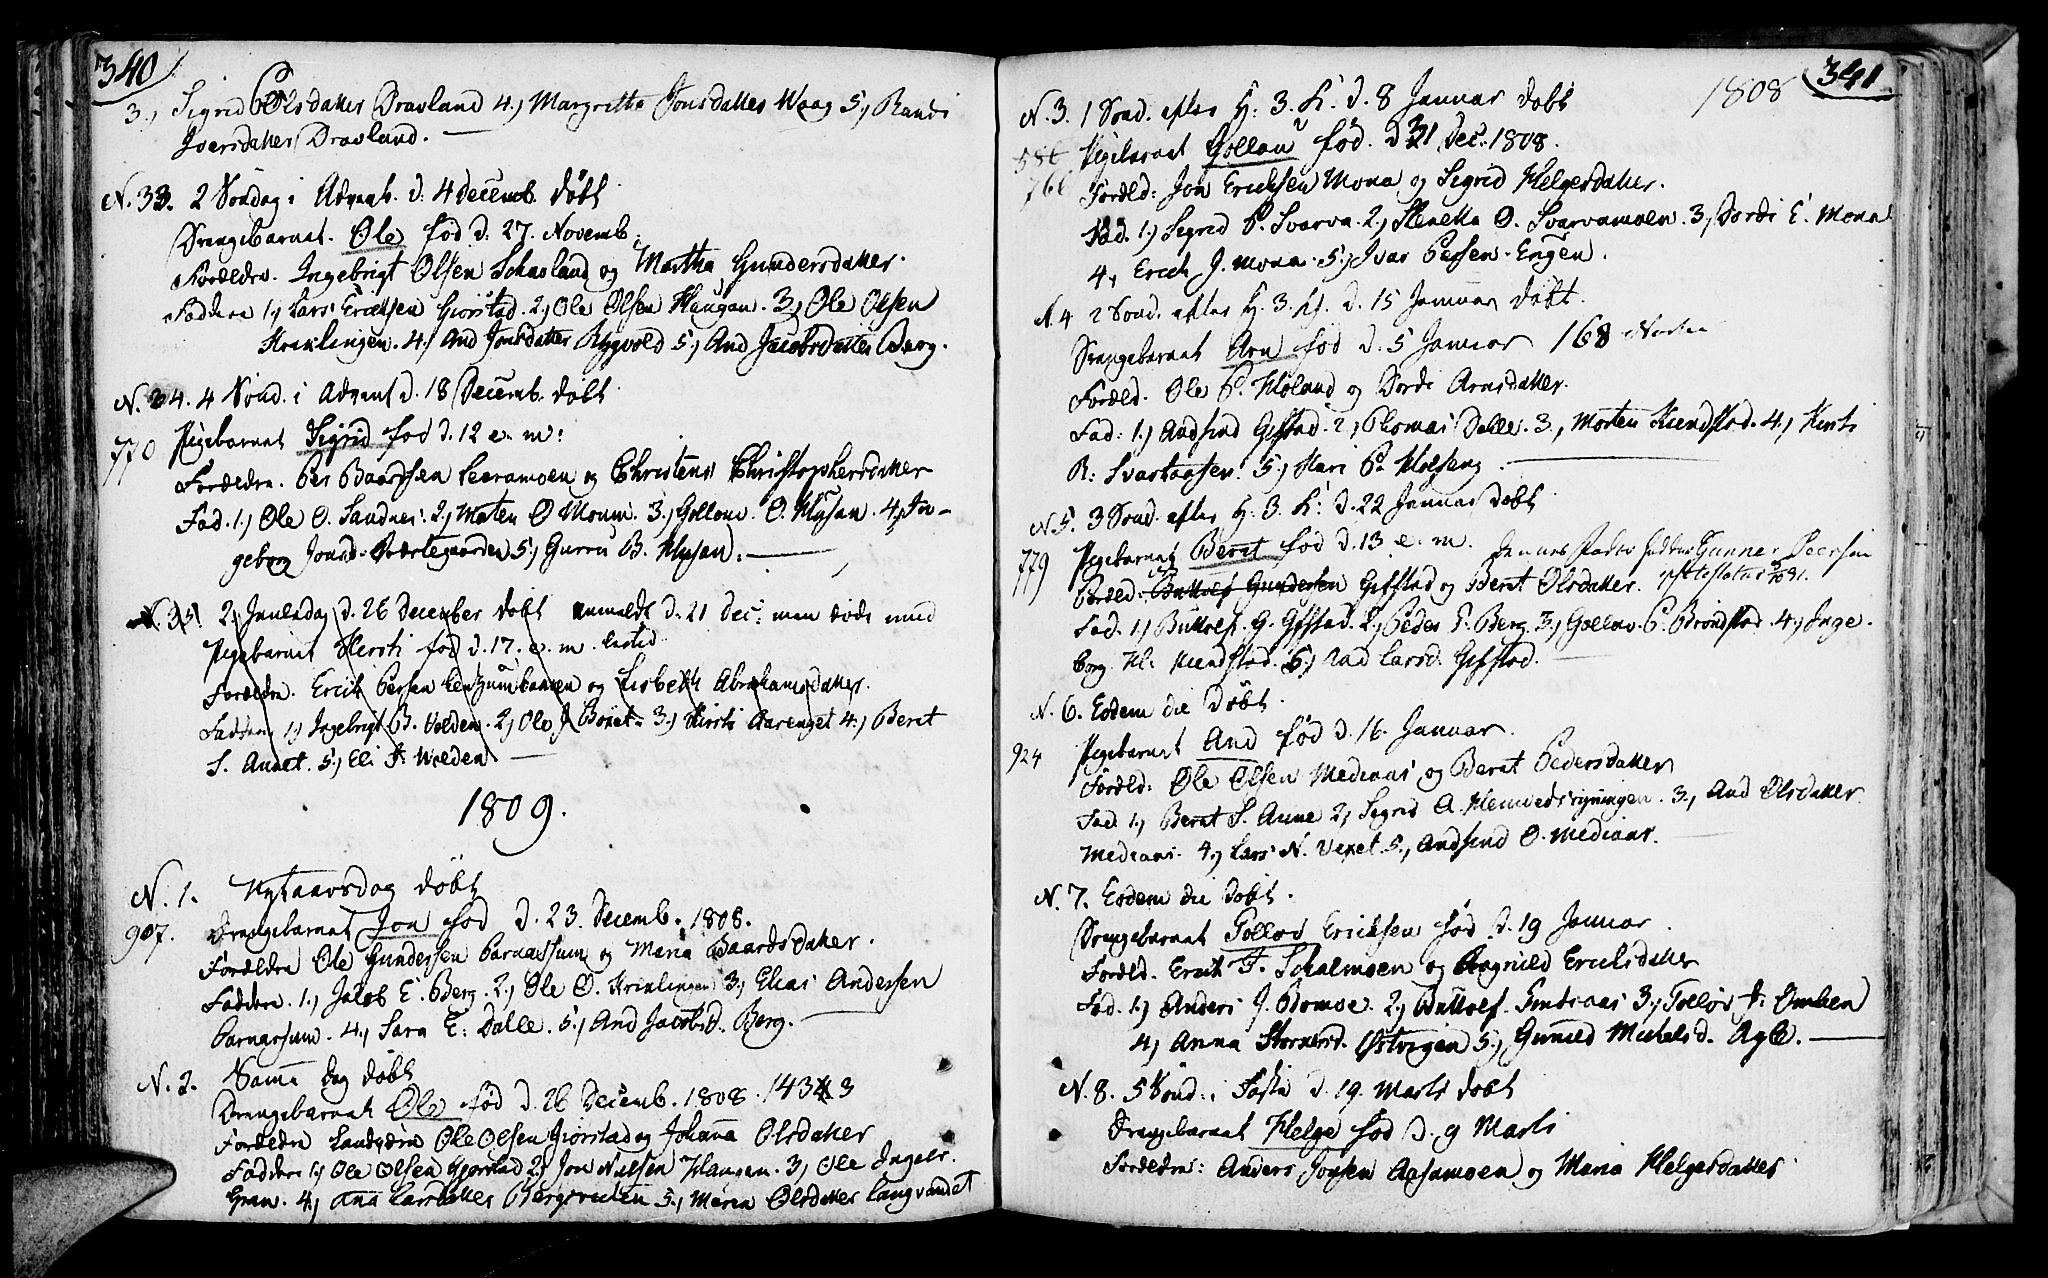 340
3., Sigrid Olsdatter Dravland 4., Margretta Jonsdatter Waag 5., Randi
Iversdatter Dravland.
N. 33. 2 Søndag i Advent. d. 4 Decemb. døbt
Drengebarnet. Ole fød d. 27. Novemb.
Forældre. Ingebrigt Olsen Schavland og Martha Gundersdatter.
Faddere 1., Lars Ericksen Giorstad. 2., Ole Olsen Haugan. 3., Ole Olsen
Kreklingen. 4., And Jonsdatter Rygvold 5., And Jacobsdatter Berg.
N. 34. 4 Sönd. i Advent d. 18 Decemb. døbt
770 Pigebarnet Sigrid fød d. 12 e. m:
Forældre. Per Baardsen Leeramoen og Christense Christophersdatter
Fad. 1., Ole O. Sandnes. 2., Morten O Moum. 3., Gollow. O. Klysan. 4., In-
geborg Jonsd. Præstegaarden 5., Gurru B. Klysan.
N. 35. 2 Juulsdag d. 26 December døbt anmeldt d. 21 Dec: men døde med
Pigebarnet Kirsti fød d. 17. e. m.
Forældre. Erik Persen og Lisbeth Abrahamsdatter.
Faddere 1., Ingebrigt B. Volden. 2., Ole J. 3., Kirsti Aarenget 4., Beret
S. Aunet. 5., Eli J. Wolden
1809.
N. 1. Nytaarsdag døbt
907. Drengebarnet Jon fød d. 23. Decemb. 1808.
Forældre Ole Gundersen Parnassum og Maria Baardsdatter.
Faddere. 1., Jacob E. Berg. 2., Ole O. Kreklingen 3., Elias Andersen
Parnassum. 4., Sara E. Dalle. 5., And Jacobsd. Berg.
N. 2. Samme Dag døbt
Drengebarnet Ole fød d. 26 Decemb. 1808. 1433
Forældre Landværn Ole Olsen Giorstad og Johanna Olsdatter
Faddere 1., Ole Olsen Gjorstad 2., Jon Nielsen Haugen. 3., Ole Ingebr.
Gran. 4., Ana Larsdatter Bergsveden 5., Maren Olsdatter Langvandet
1808 341
N. 3. 1 Sönd. efter H. 3. K. d. 8 Januar døbt
586 Pigebarnet Gollau fød. d. 31 Dec. 1808.
766 Foræld: Jon Ericksen Mona og Sigrid Helgesdatter.
Fad. 1., Sigrid P. Svarva. 2., Stenetta O. Svarvamoen. 3., Dordi E. Mona
4., Erich J. Mona. 5., Ivar Persen Engen.
N. 4 2 Sönd. efter H. 3. K. d. 15 Januar døbt.
Drengebarnet Arn fød d. 5 Januar 168
Foræld. Ole P. Holand og Dordi Arnsdatter.
Fad: 1., Andsind Gifstad. 2, Thomas Dalle. 3., Morten Kiendstad. 4., Kirsti
R. Svartaasen. 5., Kari P. Holseng.
N. 5. 3 Sönd. efter H. 3. K. d. 22 Januar døbt.
779 Pigebarnet Beret fød d. 13 e. m. Gunner Peersen
Foræld. Buttolf Gundersen Gifstad og Beret Olsdatter.
Fad. 1., Buttolf. G. Gifstad. 2., Peder P. Berg. 3., Gollav. P. Brøndstad. 4., Inge-
borg. H. Kiendstad. 5., And Larsd. Gifstad.
N. 6. Eodem die døbt.
924 Pigebarnet And fød d. 16. Januar.
Foræld: Ole Olsen Mediaas og Beret Pedersdatter
Fad. 1., Beret S. Aune 2., Sigrid A. Hemvedsrygningen. 3., And Olsdatter
Mediaas. 4., Lars N. Veret. 5., Andsind O. Mediaas.
N. 7. Eodem die døbt.
Drengebarnet Tolløv Ericksen fød d. 19 Januar
Foræld. Erick T. Schalmoen og Ragnild Ericksdatter
Fad. 1., Anders J. Bomoe. 2., Buttolf Smedsaas 3., Tolløv J. Omlien
4., Anna Stornersd. Østvigen 5., Gunild Michelsd. Agle.
N. 8. 5 Sönd. i Faste d. 19. Marts døbt
Drengebarnet Helge fød d. 9 Marts
Forældre: Anders Joesen Aasamoen og Maria Helgesdatter